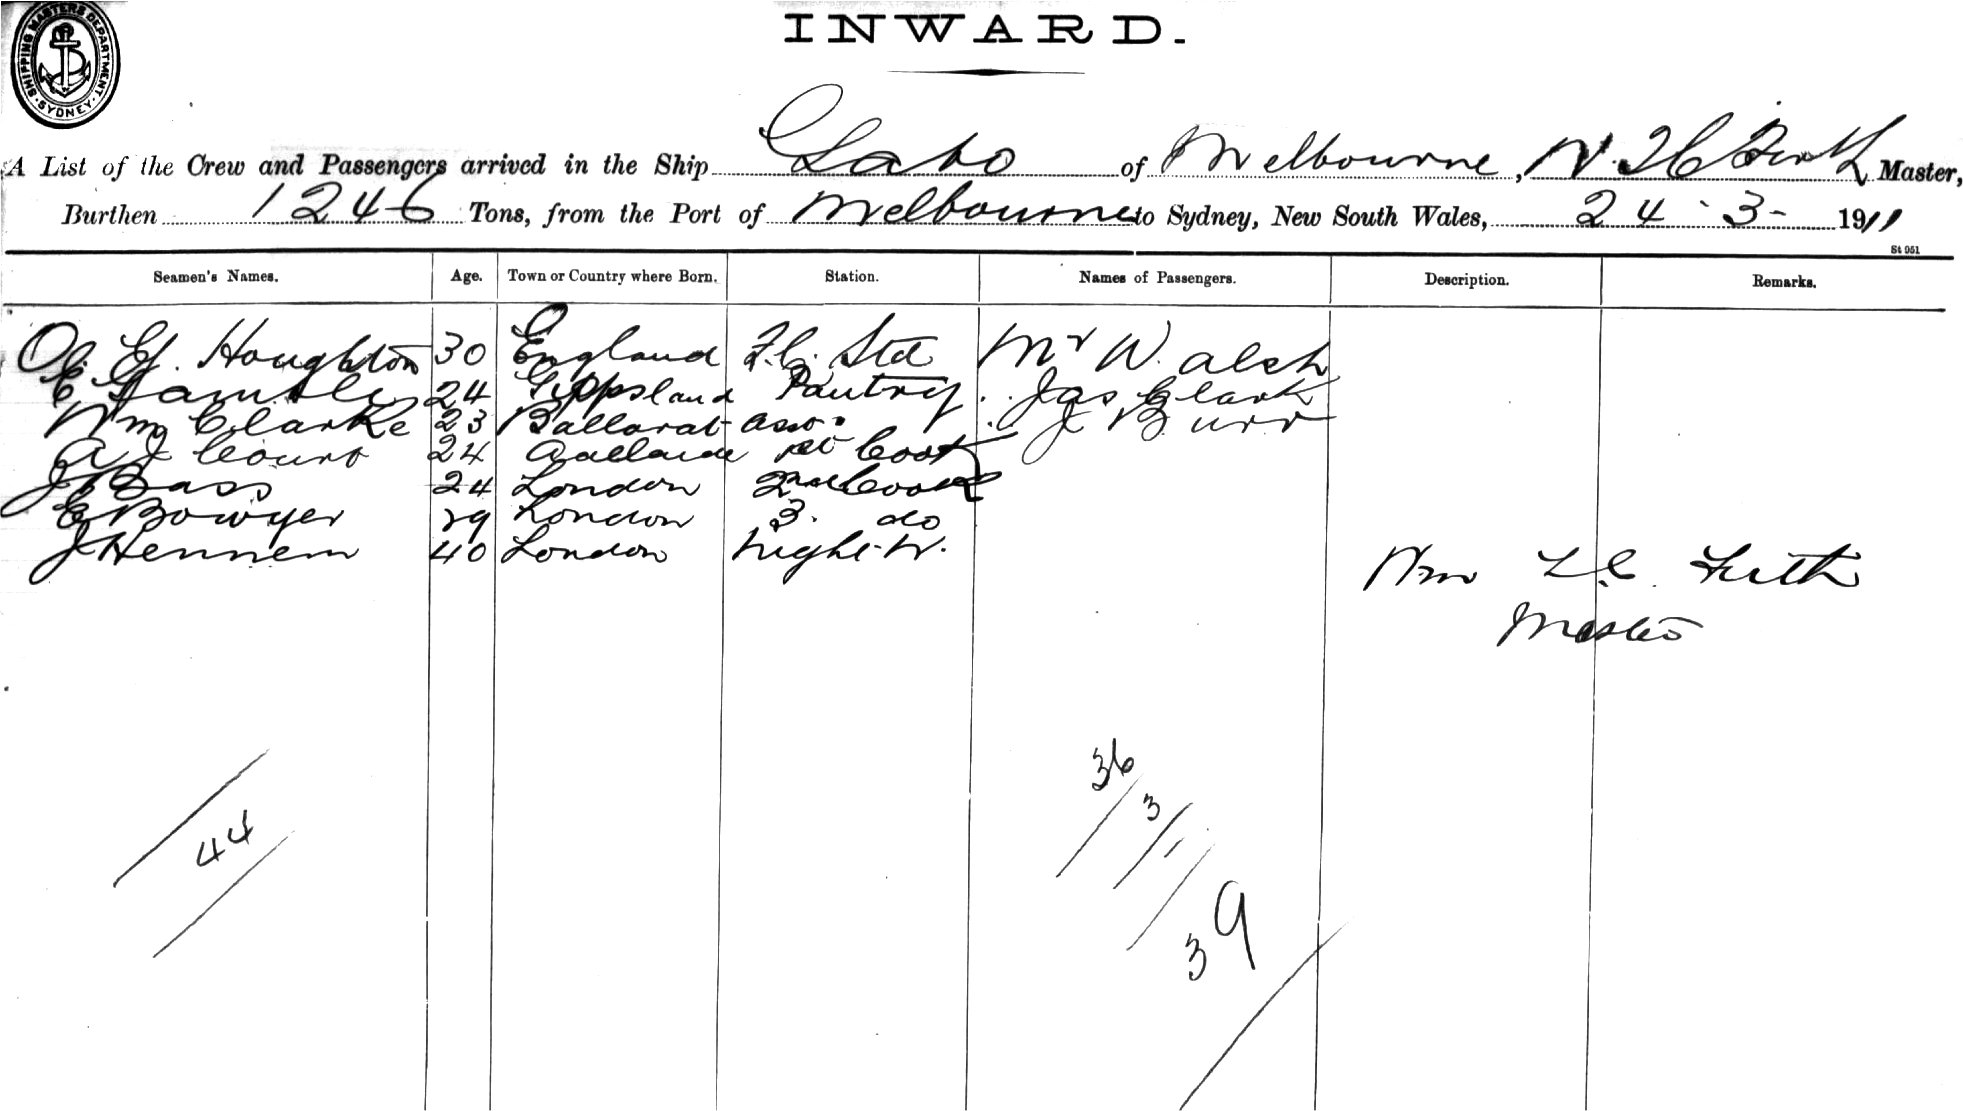 SHIPPING MASTERS DEPARTMENT
SYDNEY
INWARD.
A List of the Crew and Passengers arrived in the Ship Gabo of Melbourne, Master,
Burthen 1246 Tons, from the Port of Melbourne to Sydney, New South Wales, 24-3-1911
St 951
Seamen's Names. Age. Town or Country where Born. Station. Names of Passengers. Description. Remarks.
Houghton 30 England F.C. Std Mr Walsh
E Gamble 24 Gippsland Pantry Jas Clark
Wm Clarke 23 Ballarat asst J Burr
A J Court 24 Adelaide Cook
J Bass 24 London 2nd Cook
E Bowyer 29 London 3. do
J Hennem 40 London Night-W.
Wm L.C. Firth
Master
36
3
44
39